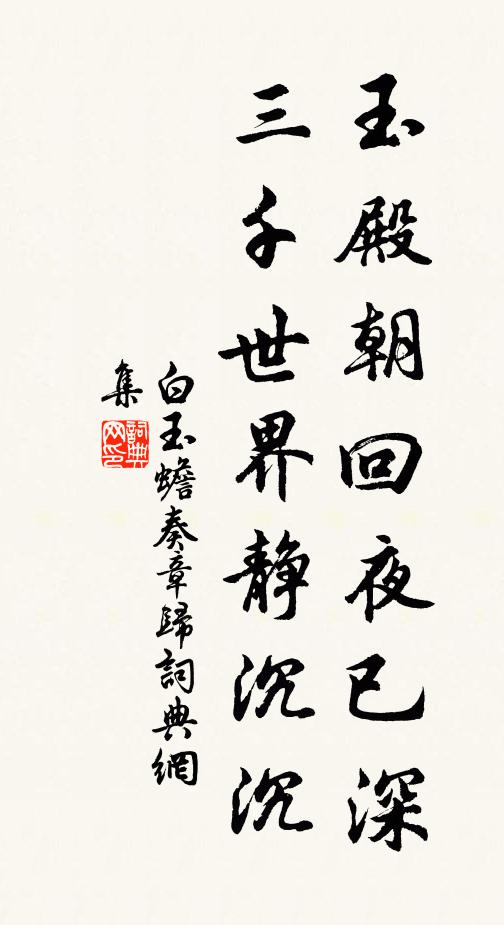 玉殿朝回夜已深
三千世界静沉沉
白玉蟾奏章歸詞典網
集
詞典网印